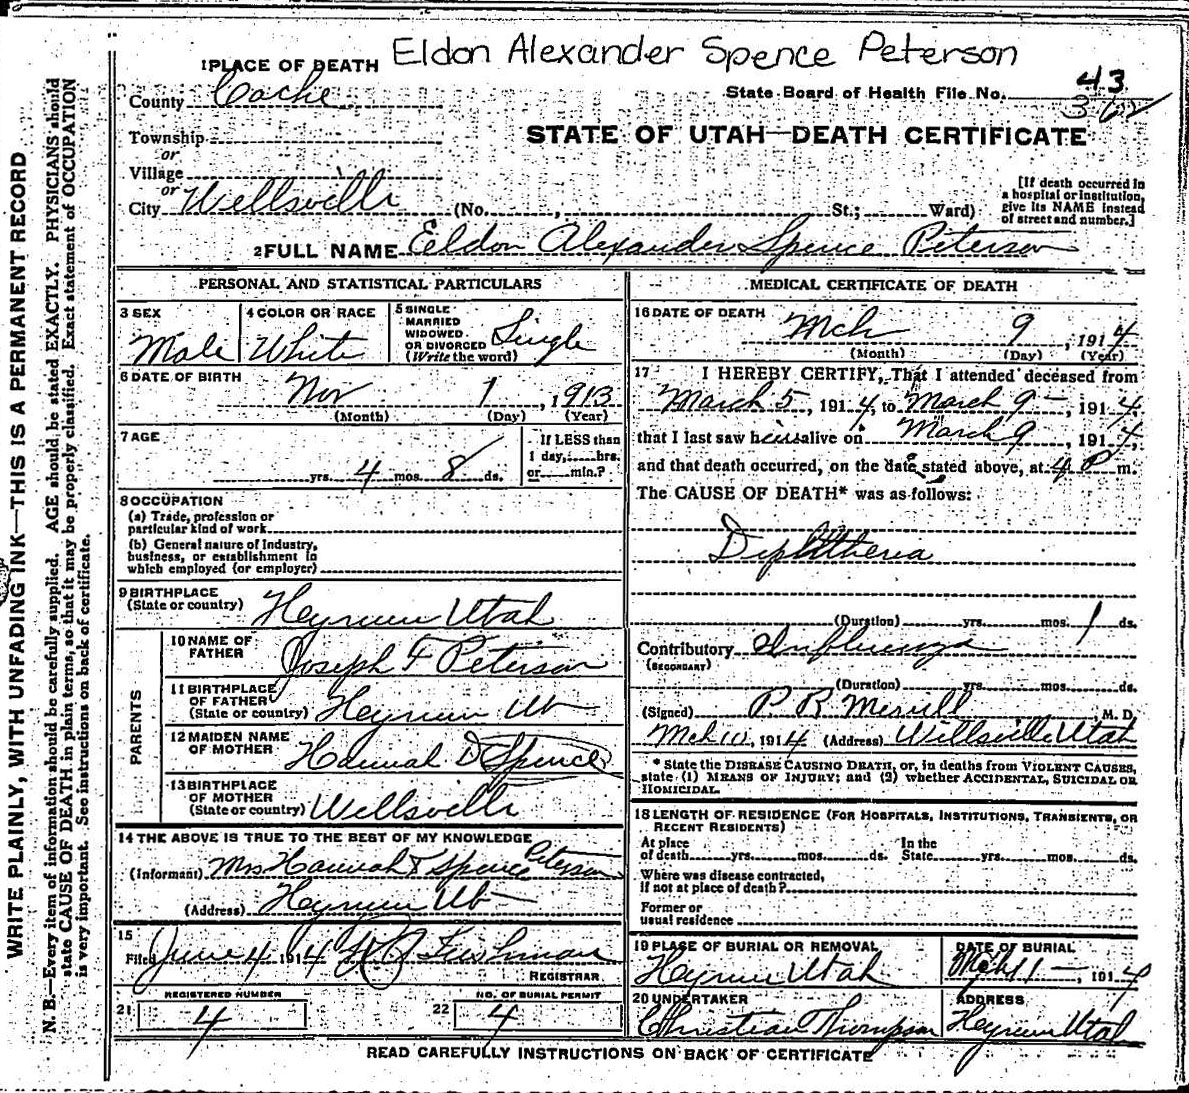 Eldon Alexander Spence Peterson
1 PLACE OF DEATH
County Cache
State Board of Health File No. 43
362
Township
or
Village
or
City Wellsville (No. , St.; Ward)
STATE OF UTAH—DEATH CERTIFICATE
[If death occurred in
a hospital or institution,
give its NAME instead
of street and number.]
2 FULL NAME Eldon Alexander Spence Peterson
PERSONAL AND STATISTICAL PARTICULARS
3 SEX
Male
4 COLOR OR RACE
White
5 SINGLE
MARRIED
WIDOWED
OR DIVORCED
(Write the word)
Single
6 DATE OF BIRTH
Nov 1, 1913
(Month) (Day) (Year)
7 AGE
yrs. 4 mos. 8 ds.
If LESS than
1 day, hrs.
or min.?
8 OCCUPATION
(a) Trade, profession or
particular kind of work
(b) General nature of industry,
business, or establishment in
which employed (or employer)
9 BIRTHPLACE
(State or country) Heyrum Utah
PARENTS
10 NAME OF
FATHER Joseph F Peterson
11 BIRTHPLACE
OF FATHER
(State or country) Heyrum Ut
12 MAIDEN NAME
OF MOTHER Hannah D Spence
13 BIRTHPLACE
OF MOTHER
(State or country) Wellsville
14 THE ABOVE IS TRUE TO THE BEST OF MY KNOWLEDGE
(Informant) Mrs Hannah Spence Peterson
(Address) Heyrum Ut
15
Filed June 4 1914
REGISTRAR
REGISTERED NUMBER
21 4
NO. OF BURIAL PERMIT
22 4
MEDICAL CERTIFICATE OF DEATH
16 DATE OF DEATH
Mch 9, 1914
(Month) (Day) (Year)
17 I HEREBY CERTIFY, That I attended deceased from
March 5, 1914, to March 9, 1914
that I last saw him alive on March 9, 1914,
and that death occurred, on the date stated above, at 4 P m.
The CAUSE OF DEATH* was as follows:
Diphtheria
(Duration) yrs. mos. 1 ds.
Contributory Influenza
(SECONDARY)
(Duration) yrs. mos. ds.
(Signed) P B Merrill M. D.
Mch 10, 1914 (Address) Willsville Utah
* State the DISEASE CAUSING DEATH, or, in deaths from VIOLENT CAUSES,
state (1) MEANS OF INJURY; and (2) whether ACCIDENTAL, SUICIDAL OR
HOMICIDAL.
18 LENGTH OF RESIDENCE (FOR HOSPITALS, INSTITUTIONS, TRANSIENTS, OR
RECENT RESIDENTS)
At place
of death yrs. mos. ds.
In the
State yrs. mos. ds.
Where was disease contracted,
if not at place of death?
Former or
usual residence
19 PLACE OF BURIAL OR REMOVAL
Heyrum Utah
DATE OF BURIAL
Mch 11, 1914
20 UNDERTAKER
Christian Thompson
ADDRESS
Heyrum Utah
READ CAREFULLY INSTRUCTIONS ON BACK OF CERTIFICATE
WRITE PLAINLY, WITH UNFADING INK—THIS IS A PERMANENT RECORD
N. B.—Every item of information should be carefully supplied. AGE should be stated EXACTLY. PHYSICIANS should
state CAUSE OF DEATH in plain terms, so that it may be properly classified. Exact statement of OCCUPATION
is very important. See instructions on back of certificate.